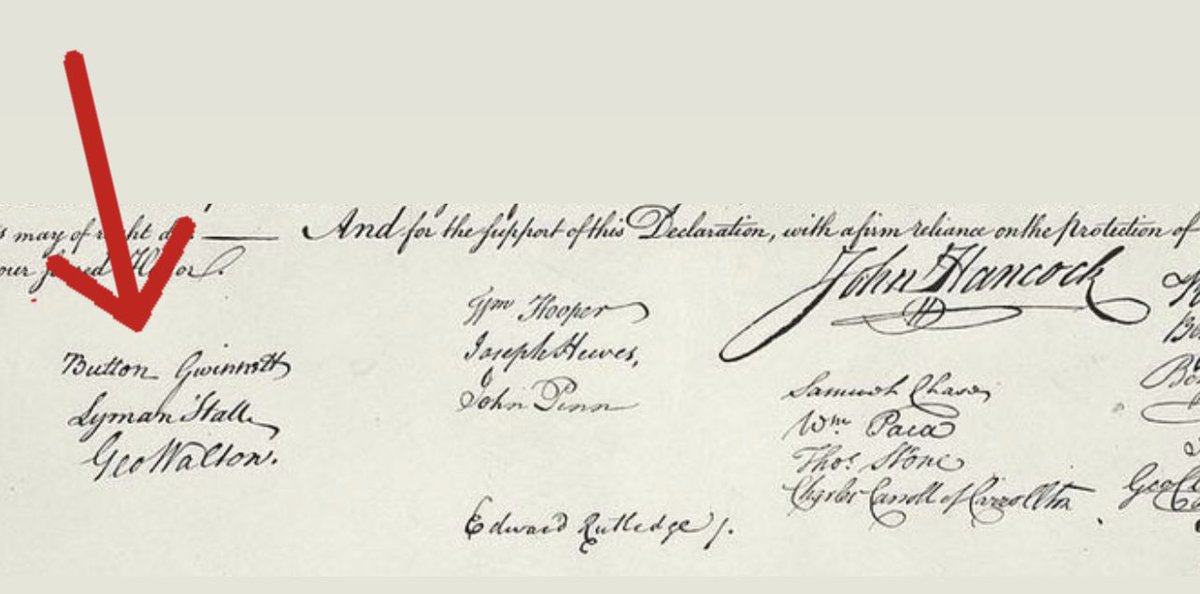 s may of right do And for the support of this Declaration, with a firm reliance on the protection of
our Honor.
John Hancock
Button Gwinnett
Lyman Hall
Geo Walton.
Wm Hooper
Joseph Hewes,
John Penn
Edward Rutledge /.
Samuel Chase
Wm. Paca
Thos. Stone
Charles Carroll of Carrollton